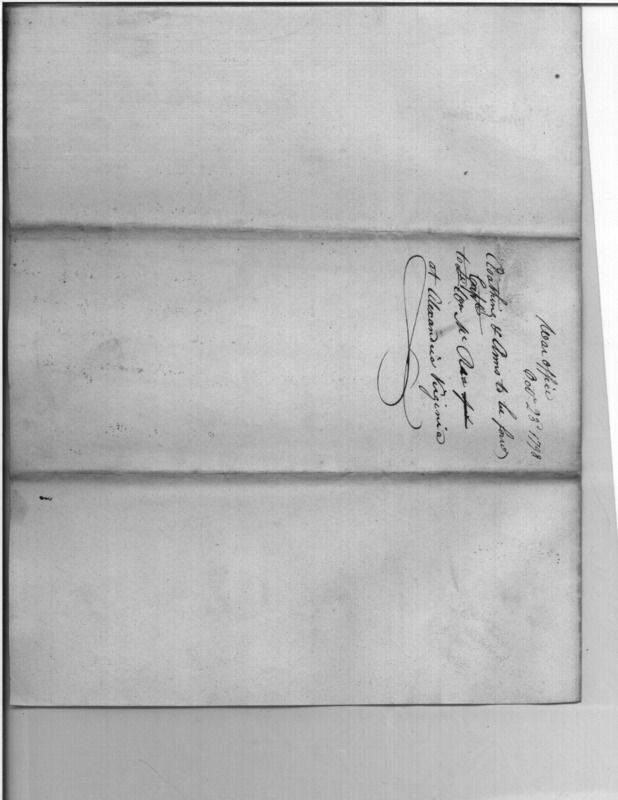 War office
Octr 23d 1798
Cloathing & Arms to be forwd
Capt
to Wm McRea
at Alexandria Virginia